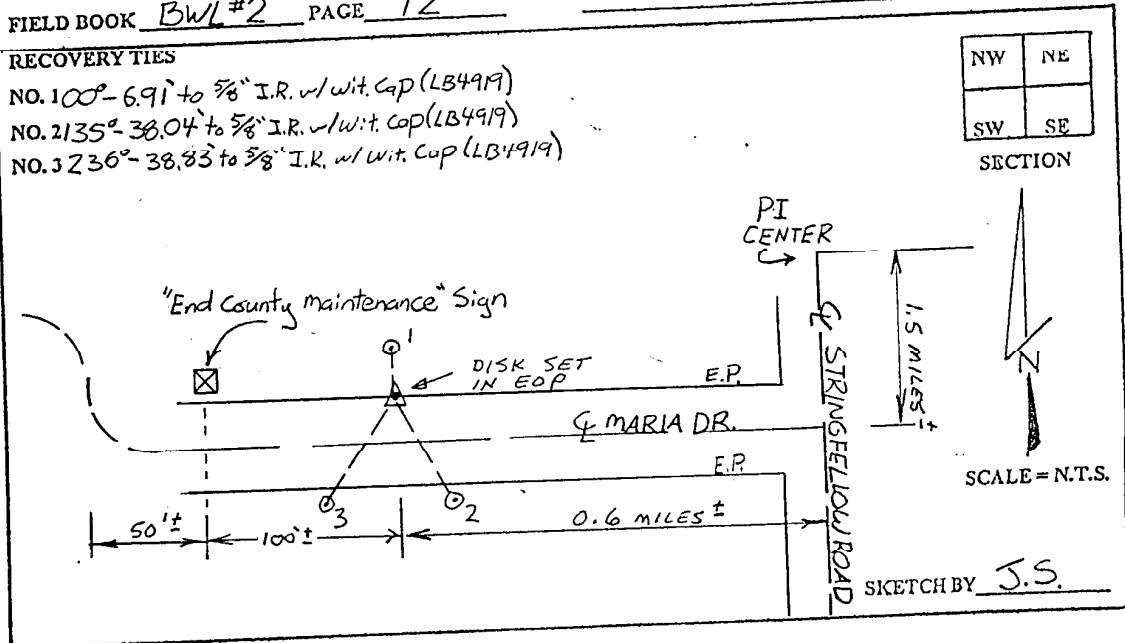 FIELD BOOK BWL #2 PAGE 12
RECOVERY TIES
NO. 1 00°- 6.91' to 5/8" I.R. w/ wit. Cap (LB4919)
NO. 2 135°- 38.04' to 5/8" I.R. w/ wit. Cap (LB4919)
NO. 3 236°- 38.83' to 5/8" I.R. w/ wit. Cap (LB4919)
NW NE
SW SE
SECTION
PI
CENTER
"End County maintenance" Sign
1
DISK SET
IN EOP
E.P.
1.5 MILES ±
℄ STRINGFELLOW ROAD
N
℄ MARIA DR.
E.P.
SCALE = N.T.S.
3
2
50' ±
100' ±
0.6 MILES ±
SKETCH BY J.S.